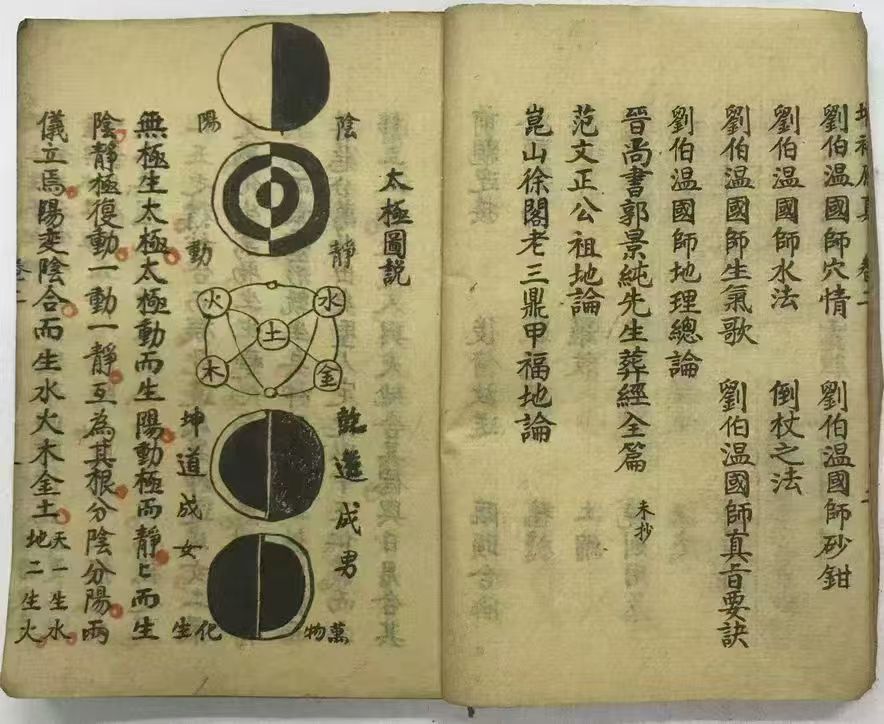 卷二
劉伯溫國師穴情 劉伯溫國師砂鉗
劉伯溫國師水法 倒杖之法
劉伯溫國師生氣歌 劉伯溫國師真旨要訣
劉伯溫國師地理總論
晉尚書郭景純先生葬經全篇 未抄
范文正公祖地論
崑山徐閣老三鼎甲福地論
太極圖説
陰靜
陽動
水
火
土
金
木
乾道成男
坤道成女
萬物
化生
無極生太極太極動而生陽動極而靜匕而生
陰靜極復動一動一靜互為其根分陰分陽兩
儀立焉陽变陰合而生水火木金土 天一生水
地二生火